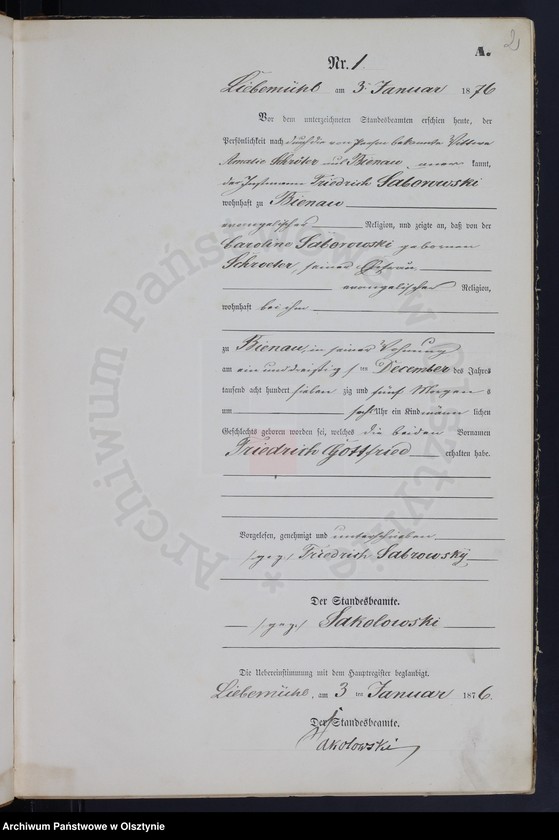 A.
2
Nr. 1.
Liebemühl am 3ten Januar 1876
Vor dem unterzeichneten Standesbeamten erschien heute, der
Persönlichkeit nach durch die von Person bekannte Wittwe
Amalie Schröter aus Bienau, kannt,
der Instmann Friedrich Saborowski
wohnhaft zu Bienau
evangelischer Religion, und zeigte an, daß von der
Caroline Saborowski geborenen
Schroeter, seiner Ehefrau,
evangelischer Religion,
wohnhaft bei ihm
zu Bienau, in seiner Wohnung
am ein und dreißigsten December des Jahres
tausend acht hundert sieben zig und fünf Morgens
um sechs Uhr ein Kind männ lichen
Geschlechts geboren worden sei, welches die beiden Vornamen
Friedrich Gottfried erhalten habe.
Vorgelesen, genehmigt und unterschrieben
/gez/ Friedrich Sabrowsky
Der Standesbeamte.
/gez/ Sakolowski
Die Uebereinstimmung mit dem Hauptregister beglaubigt.
Liebemühl, am 3 ten Januar 1876.
Der Standesbeamte.
Sakolowski
Archiwum Państwowe w Olsztynie
Archiwum Państwowe w Olsztynie